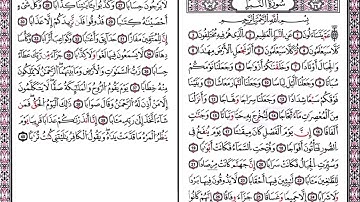 سُورَةُ النَّبَإِ
بِسْمِ اللَّهِ الرَّحْمَٰنِ الرَّحِيمِ
عَمَّ يَتَسَاءَلُونَ عَنِ النَّبَإِ الْعَظِيمِ الَّذِي هُمْ فِيهِ مُخْتَلِفُونَ
كَلَّا سَيَعْلَمُونَ ثُمَّ كَلَّا سَيَعْلَمُونَ أَلَمْ نَجْعَلِ الْأَرْضَ مِهَادًا
وَالْجِبَالَ أَوْتَادًا وَخَلَقْنَاكُمْ أَزْوَاجًا وَجَعَلْنَا نَوْمَكُمْ
سُبَاتًا وَجَعَلْنَا اللَّيْلَ لِبَاسًا وَجَعَلْنَا النَّهَارَ مَعَاشًا وَبَنَيْنَا
فَوْقَكُمْ سَبْعًا شِدَادًا وَجَعَلْنَا سِرَاجًا وَهَّاجًا وَأَنزَلْنَا
مِنَ الْمُعْصِرَاتِ مَاءً ثَجَّاجًا لِّنُخْرِجَ بِهِ حَبًّا وَنَبَاتًا وَجَنَّاتٍ
أَلْفَافًا إِنَّ يَوْمَ الْفَصْلِ كَانَ مِيقَاتًا يَوْمَ يُنفَخُ فِي
الصُّورِ فَتَأْتُونَ أَفْوَاجًا وَفُتِحَتِ السَّمَاءُ فَكَانَتْ أَبْوَابًا
وَسُيِّرَتِ الْجِبَالُ فَكَانَتْ سَرَابًا إِنَّ جَهَنَّمَ كَانَتْ مِرْصَادًا
لِّلطَّاغِينَ مَآبًا لَّابِثِينَ فِيهَا أَحْقَابًا لَّا يَذُوقُونَ فِيهَا بَرْدًا
وَلَا شَرَابًا إِلَّا حَمِيمًا وَغَسَّاقًا جَزَاءً وِفَاقًا إِنَّهُمْ كَانُوا
لَا يَرْجُونَ حِسَابًا وَكَذَّبُوا بِآيَاتِنَا كِذَّابًا وَكُلَّ شَيْءٍ
أَحْصَيْنَاهُ كِتَابًا فَذُوقُوا فَلَن نَّزِيدَكُمْ إِلَّا عَذَابًا
إِنَّ لِلْمُتَّقِينَ مَفَازًا حَدَائِقَ وَأَعْنَابًا وَكَوَاعِبَ أَتْرَابًا وَكَأْسًا
دِهَاقًا لَّا يَسْمَعُونَ فِيهَا لَغْوًا وَلَا كِذَّابًا جَزَاءً مِّن رَّبِّكَ عَطَاءً
حِسَابًا رَّبِّ السَّمَاوَاتِ وَالْأَرْضِ وَمَا بَيْنَهُمَا الرَّحْمَٰنِ لَا يَمْلِكُونَ
مِنْهُ خِطَابًا يَوْمَ يَقُومُ الرُّوحُ وَالْمَلَائِكَةُ صَفًّا لَّا يَتَكَلَّمُونَ
إِلَّا مَنْ أَذِنَ لَهُ الرَّحْمَٰنُ وَقَالَ صَوَابًا ذَٰلِكَ الْيَوْمُ الْحَقُّ فَمَن
شَاءَ اتَّخَذَ إِلَىٰ رَبِّهِ مَآبًا إِنَّا أَنذَرْنَاكُمْ عَذَابًا قَرِيبًا يَوْمَ
يَنظُرُ الْمَرْءُ مَا قَدَّمَتْ يَدَاهُ وَيَقُولُ الْكَافِرُ يَا لَيْتَنِي كُنتُ تُرَابًا